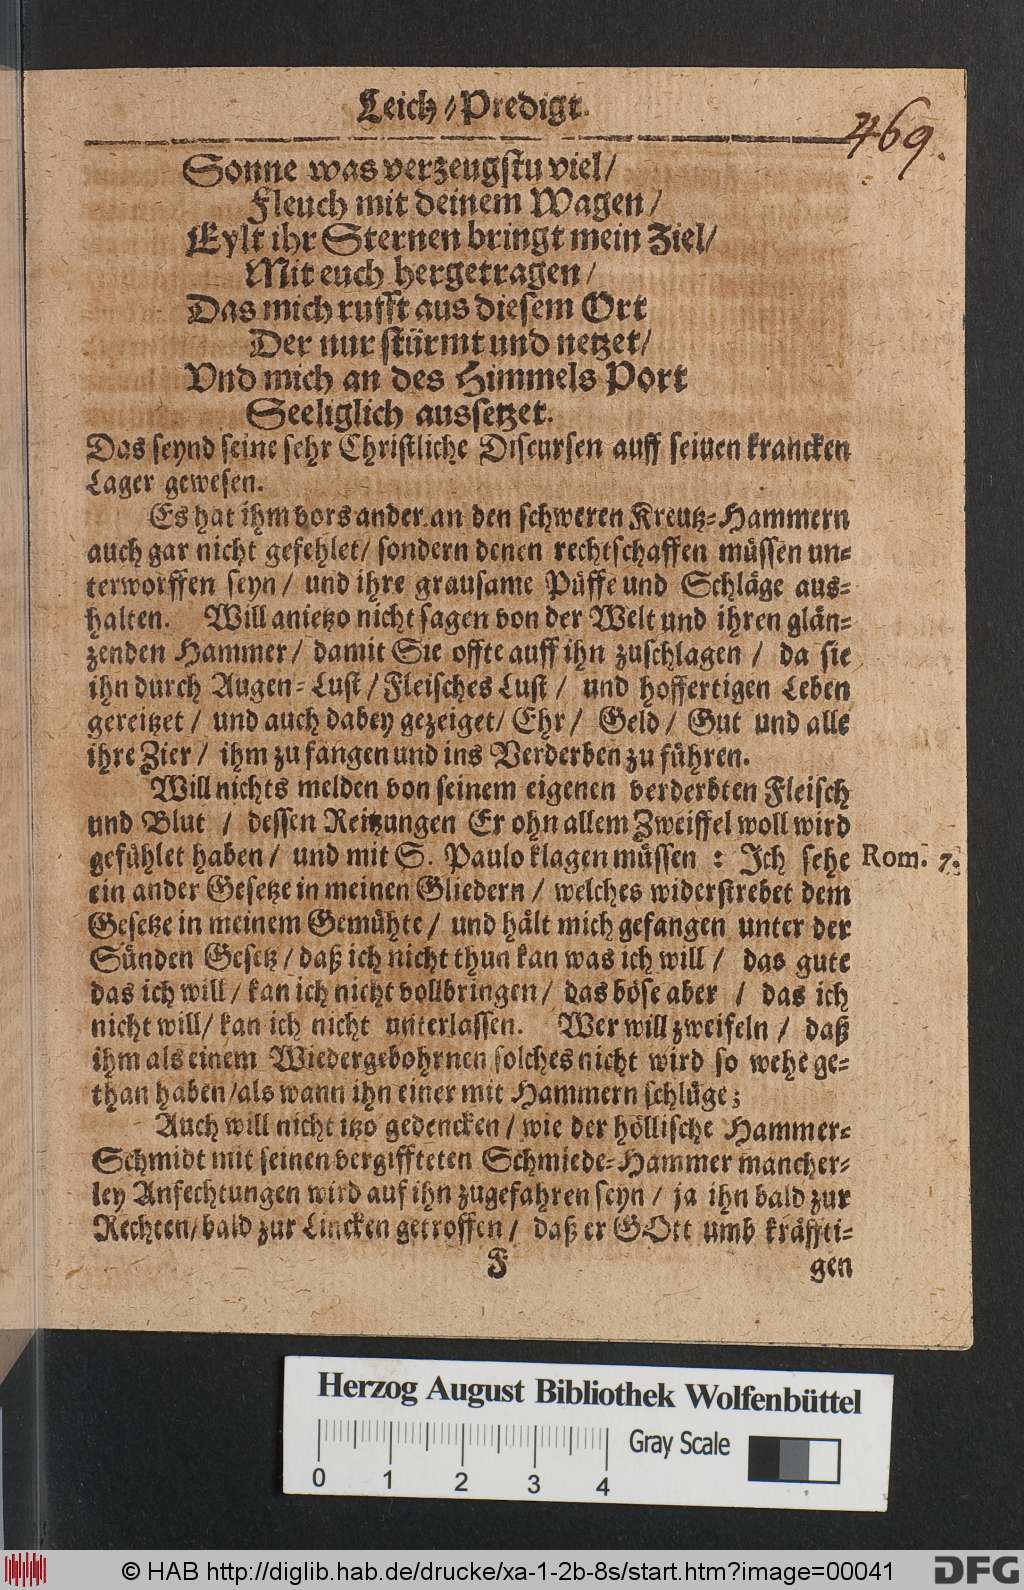 Leich-Predigt.
469.
Sonne was verzeugstu viel/
Fleuch mit deinem Wagen/
Eylt ihr Sternen bringt mein Ziel/
Mit euch hergetragen/
Das mich rufft aus diesem Ort
Der nur stürmt und netzet/
Vnd mich an des Himmels Port
Seeliglich aussetzet.
Das seynd seine sehr Christliche Discursen auff seiuen krancken
Lager gewesen.
Es hat ihm vors ander an den schweren Kreutz-Hammern
auch gar nicht gefehlet/ sondern denen rechtschaffen müssen un-
terworffen seyn/ und ihre grausame Püffe und Schläge aus-
halten. Will anietzo nicht sagen von der Welt und ihren glän-
zenden Hammer/ damit Sie offte auff ihn zuschlagen/ da sie
ihn durch Augen-Lust/ Fleisches Lust/ und hoffertigen Leben
gereitzet/ und auch dabey gezeiget/ Ehr/ Geld/ Gut und alle
ihre Zier/ ihm zu fangen und ins Verderben zu führen.
Will nichts melden von seinem eigenen verderbten Fleisch
und Blut/ dessen Reitzungen Er ohn allem Zweiffel woll wird
gefühlet haben/ und mit S. Paulo klagen müssen: Ich sehe
Rom. 7.
ein ander Gesetze in meinen Gliedern/ welches widerstrebet dem
Gesetze in meinem Gemühte/ und hält mich gefangen unter der
Sünden Gesetz/ daß ich nicht thun kan was ich will/ das gute
das ich will/ kan ich nicht vollbringen/ das böse aber/ das ich
nicht will/ kan ich nicht unterlassen. Wer will zweifeln/ daß
ihm als einem Wiedergebohrnen solches nicht wird so wehe ge-
than haben/ als wann ihn einer mit Hammern schlüge;
Auch will nicht itzo gedencken/ wie der höllische Hammer-
Schmidt mit seinen vergiffteten Schmiede-Hammer mancher-
ley Anfechtungen wird auf ihn zugefahren seyn/ ja ihn bald zur
Rechten/ bald zur Lincken getroffen/ daß er GOtt umb kräffti-
F gen
Herzog August Bibliothek Wolfenbüttel
Gray Scale
0 1 2 3 4
© HAB http://diglib.hab.de/drucke/xa-1-2b-8s/start.htm?image=00041
DFG